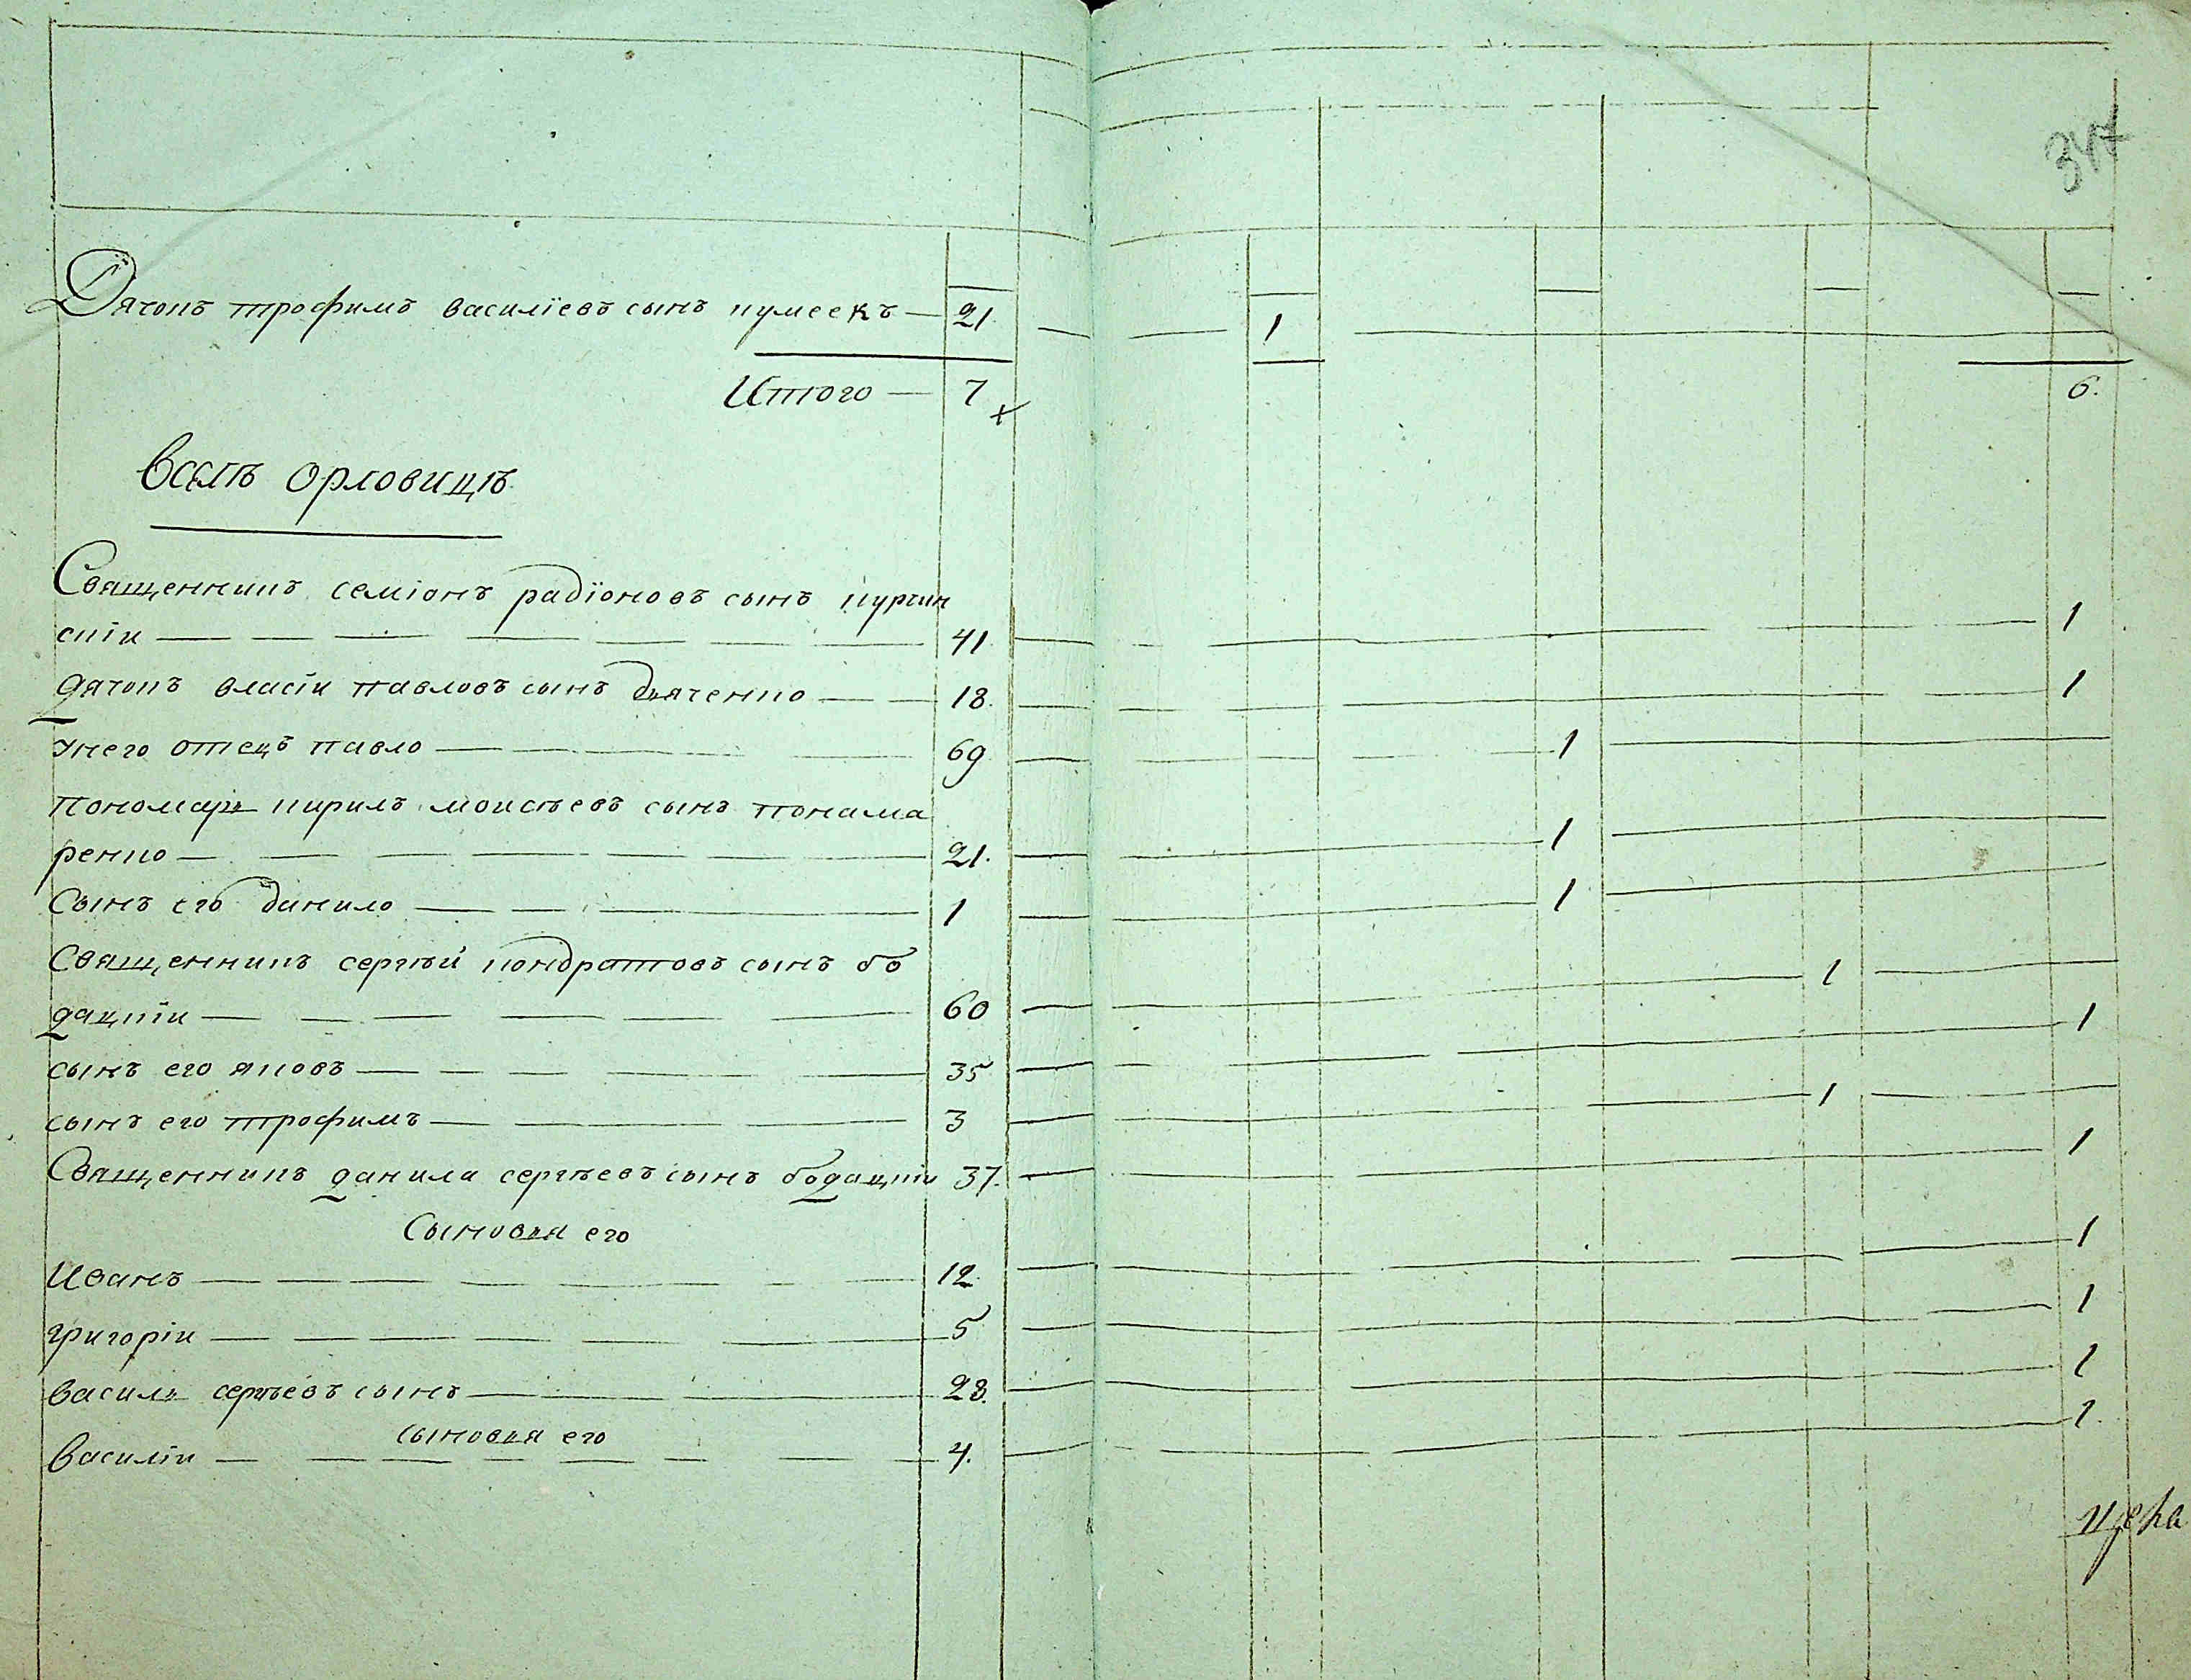 347
Дячокъ трофимъ василїевъ сынъ кумеекъ — 21 1
Итого — 7 6.
Вселѣ орловицѣ
Священникъ семіонъ радїоновъ сынъ курчин
скїи 41 1
дячокъ власїи павловъ сынъ дьяченко 18. 1
Унего отецъ павло 69 1
Пономарь кирилъ моисѣевъ сынъ понама
ренко 21. 1
Сынъ его данило 1 1
Священникъ сергѣй кондратовъ сынъ бо
дацкїи 60 1
сынъ его яковъ 35 1
сынъ его трофимъ 3 1
Священникъ данила сергѣевъ сынъ бодацкїи 37. 1
Сыновья его
Иванъ 12. 1
григорїи 5 1
василь сергѣевъ сынъ 28. 1
сыновья его
Василїи 4. 1